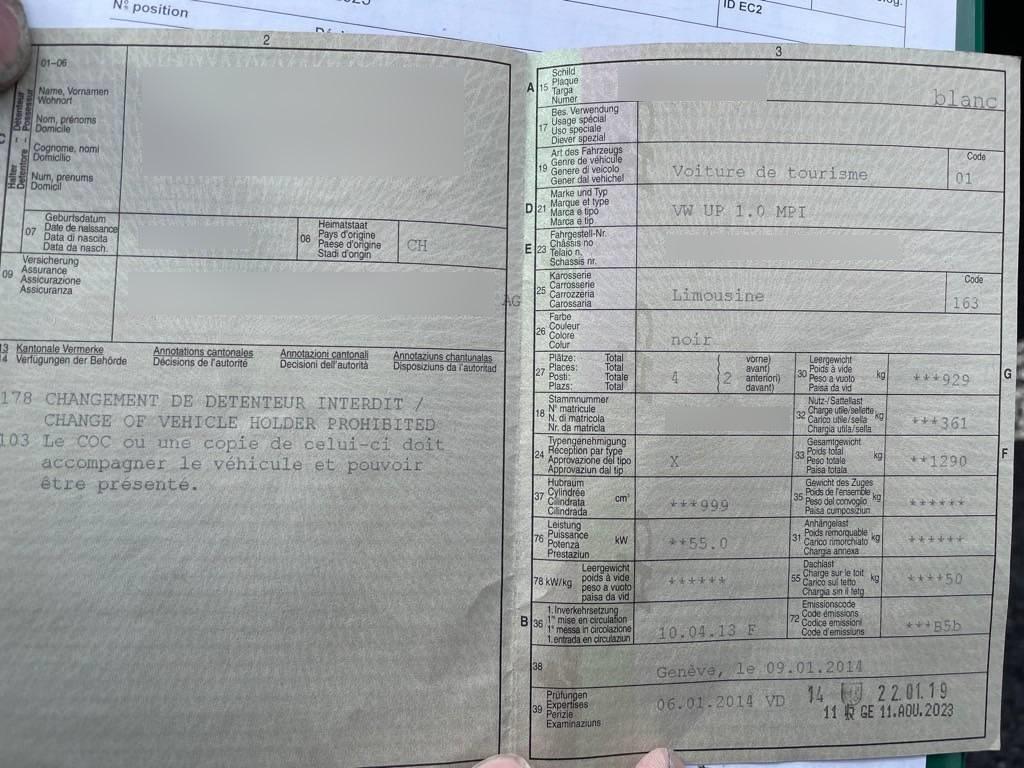 N° position
ID EC2
2
01-06
Halter - Détenteur
Detentore - Possessur
Name, Vornamen
Wohnort
Nom, prénoms
Domicile
Cognome, nomi
Domicilio
Num, prenums
Domicil
07
Geburtsdatum
Date de naissance
Data di nascita
Data da nasch.
08
Heimatstaat
Pays d'origine
Paese d'origine
Stadi d'origin
CH
09
Versicherung
Assurance
Assicurazione
Assicuranza
AG
13 Kantonale Vermerke
14 Verfügungen der Behörde
Annotations cantonales
Décisions de l'autorité
Annotazioni cantonali
Decisioni dell'autorità
Annotaziuns chantunalas
Disposiziuns da l'autoritad
178 CHANGEMENT DE DETENTEUR INTERDIT /
CHANGE OF VEHICLE HOLDER PROHIBITED
103 Le COC ou une copie de celui-ci doit
accompagner le véhicule et pouvoir
être présenté.
3
A 15
Schild
Plaque
Targa
Numer
blanc
17
Bes. Verwendung
Usage spécial
Uso speciale
Diever spezial
19
Art des Fahrzeugs
Genre de véhicule
Genere di veicolo
Gener dal vehichel
Voiture de tourisme
Code
01
D 21
Marke und Typ
Marque et type
Marca e tipo
Marca e tip
VW UP 1.0 MPI
E 23
Fahrgestell-Nr.
Châssis no
Telaio n.
Schassis nr.
25
Karosserie
Carrosserie
Carrozzeria
Carossaria
Limousine
Code
163
26
Farbe
Couleur
Colore
Colur
noir
27
Plätze: Total
Places: Total
Posti: Totale
Plazs: Total
4 { 2
vorne)
avant)
anteriori)
davant)
30
Leergewicht
Poids à vide
Peso a vuoto
Paisa da vid
kg
***929
G
18
Stammnummer
N° matricule
N. di matricola
Nr. da matricla
32
Nutz-/Sattellast
Charge utile/sellette
Carico utile/sella
Chargia utila/sella
kg
***361
24
Typengenehmigung
Réception par type
Approvazione del tipo
Approvaziun dal tip
X
33
Gesamtgewicht
Poids total
Peso totale
Paisa totala
kg
**1290
F
37
Hubraum
Cylindrée
Cilindrata
Cilindrada
cm³
***999
35
Gewicht des Zuges
Poids de l'ensemble
Peso del convoglio
Paisa cumposiziun
kg
******
76
Leistung
Puissance
Potenza
Prestaziun
kW
**55.0
31
Anhängelast
Poids remorquable
Carico rimorchiato
Chargia annexa
kg
******
78 kW/kg
Leergewicht
poids à vide
peso a vuoto
paisa da vid
******
55
Dachlast
Charge sur le toit
Carico sul tetto
Chargia sin il tetg
kg
****50
B 36
1. Inverkehrsetzung
1re mise en circulation
1a messa in circolazione
1. entrada en circulaziun
10.04.13 F
72
Emissionscode
Code émissions
Codice emissioni
Code d'emissiuns
***B5b
38
Genève, le 09.01.2014
39
Prüfungen
Expertises
Perizie
Examinaziuns
06.01.2014 VD
14 22.01.19
11 GE 11.AOU.2023